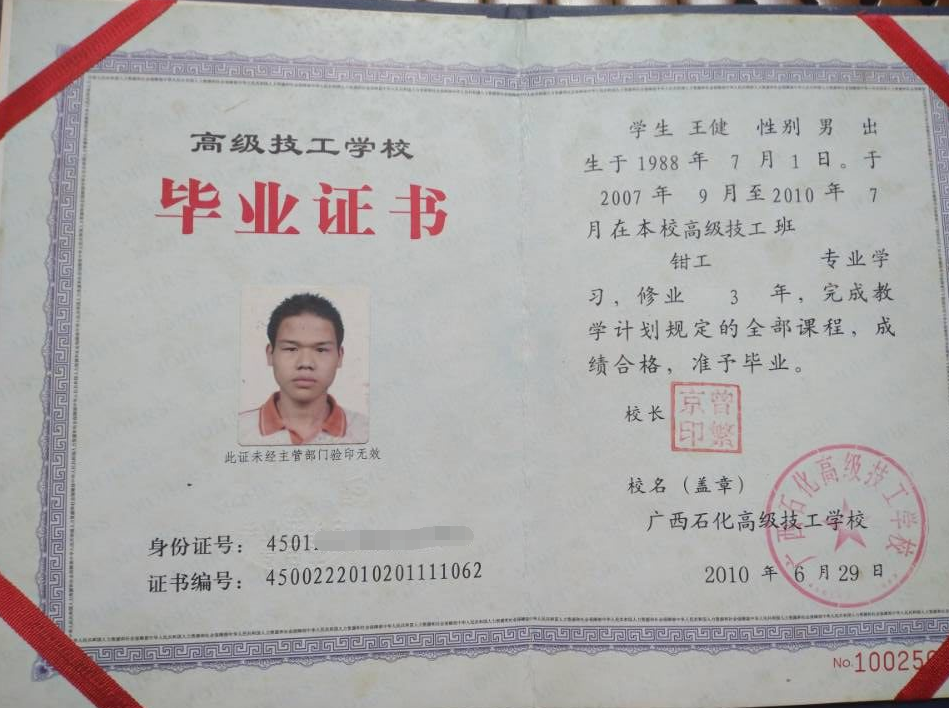 高级技工学校
毕业证书
此证未经主管部门验印无效
身份证号： 4501
证书编号： 4500222010201111062
学生 王健 性别 男 出
生于 1988 年 7 月 1 日。于
2007 年 9 月至 2010 年 7
月在本校高级技工班
钳工 专业学
习，修业 3 年，完成教
学计划规定的全部课程，成
绩合格，准予毕业。
校长
曾繁京印
校名（盖章）
广西石化高级技工学校
广西石化高级技工学校
2010 年 6 月 29 日
No.100250